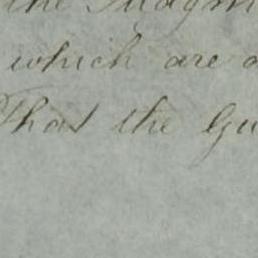 the Judgm
which are a
That the Gu